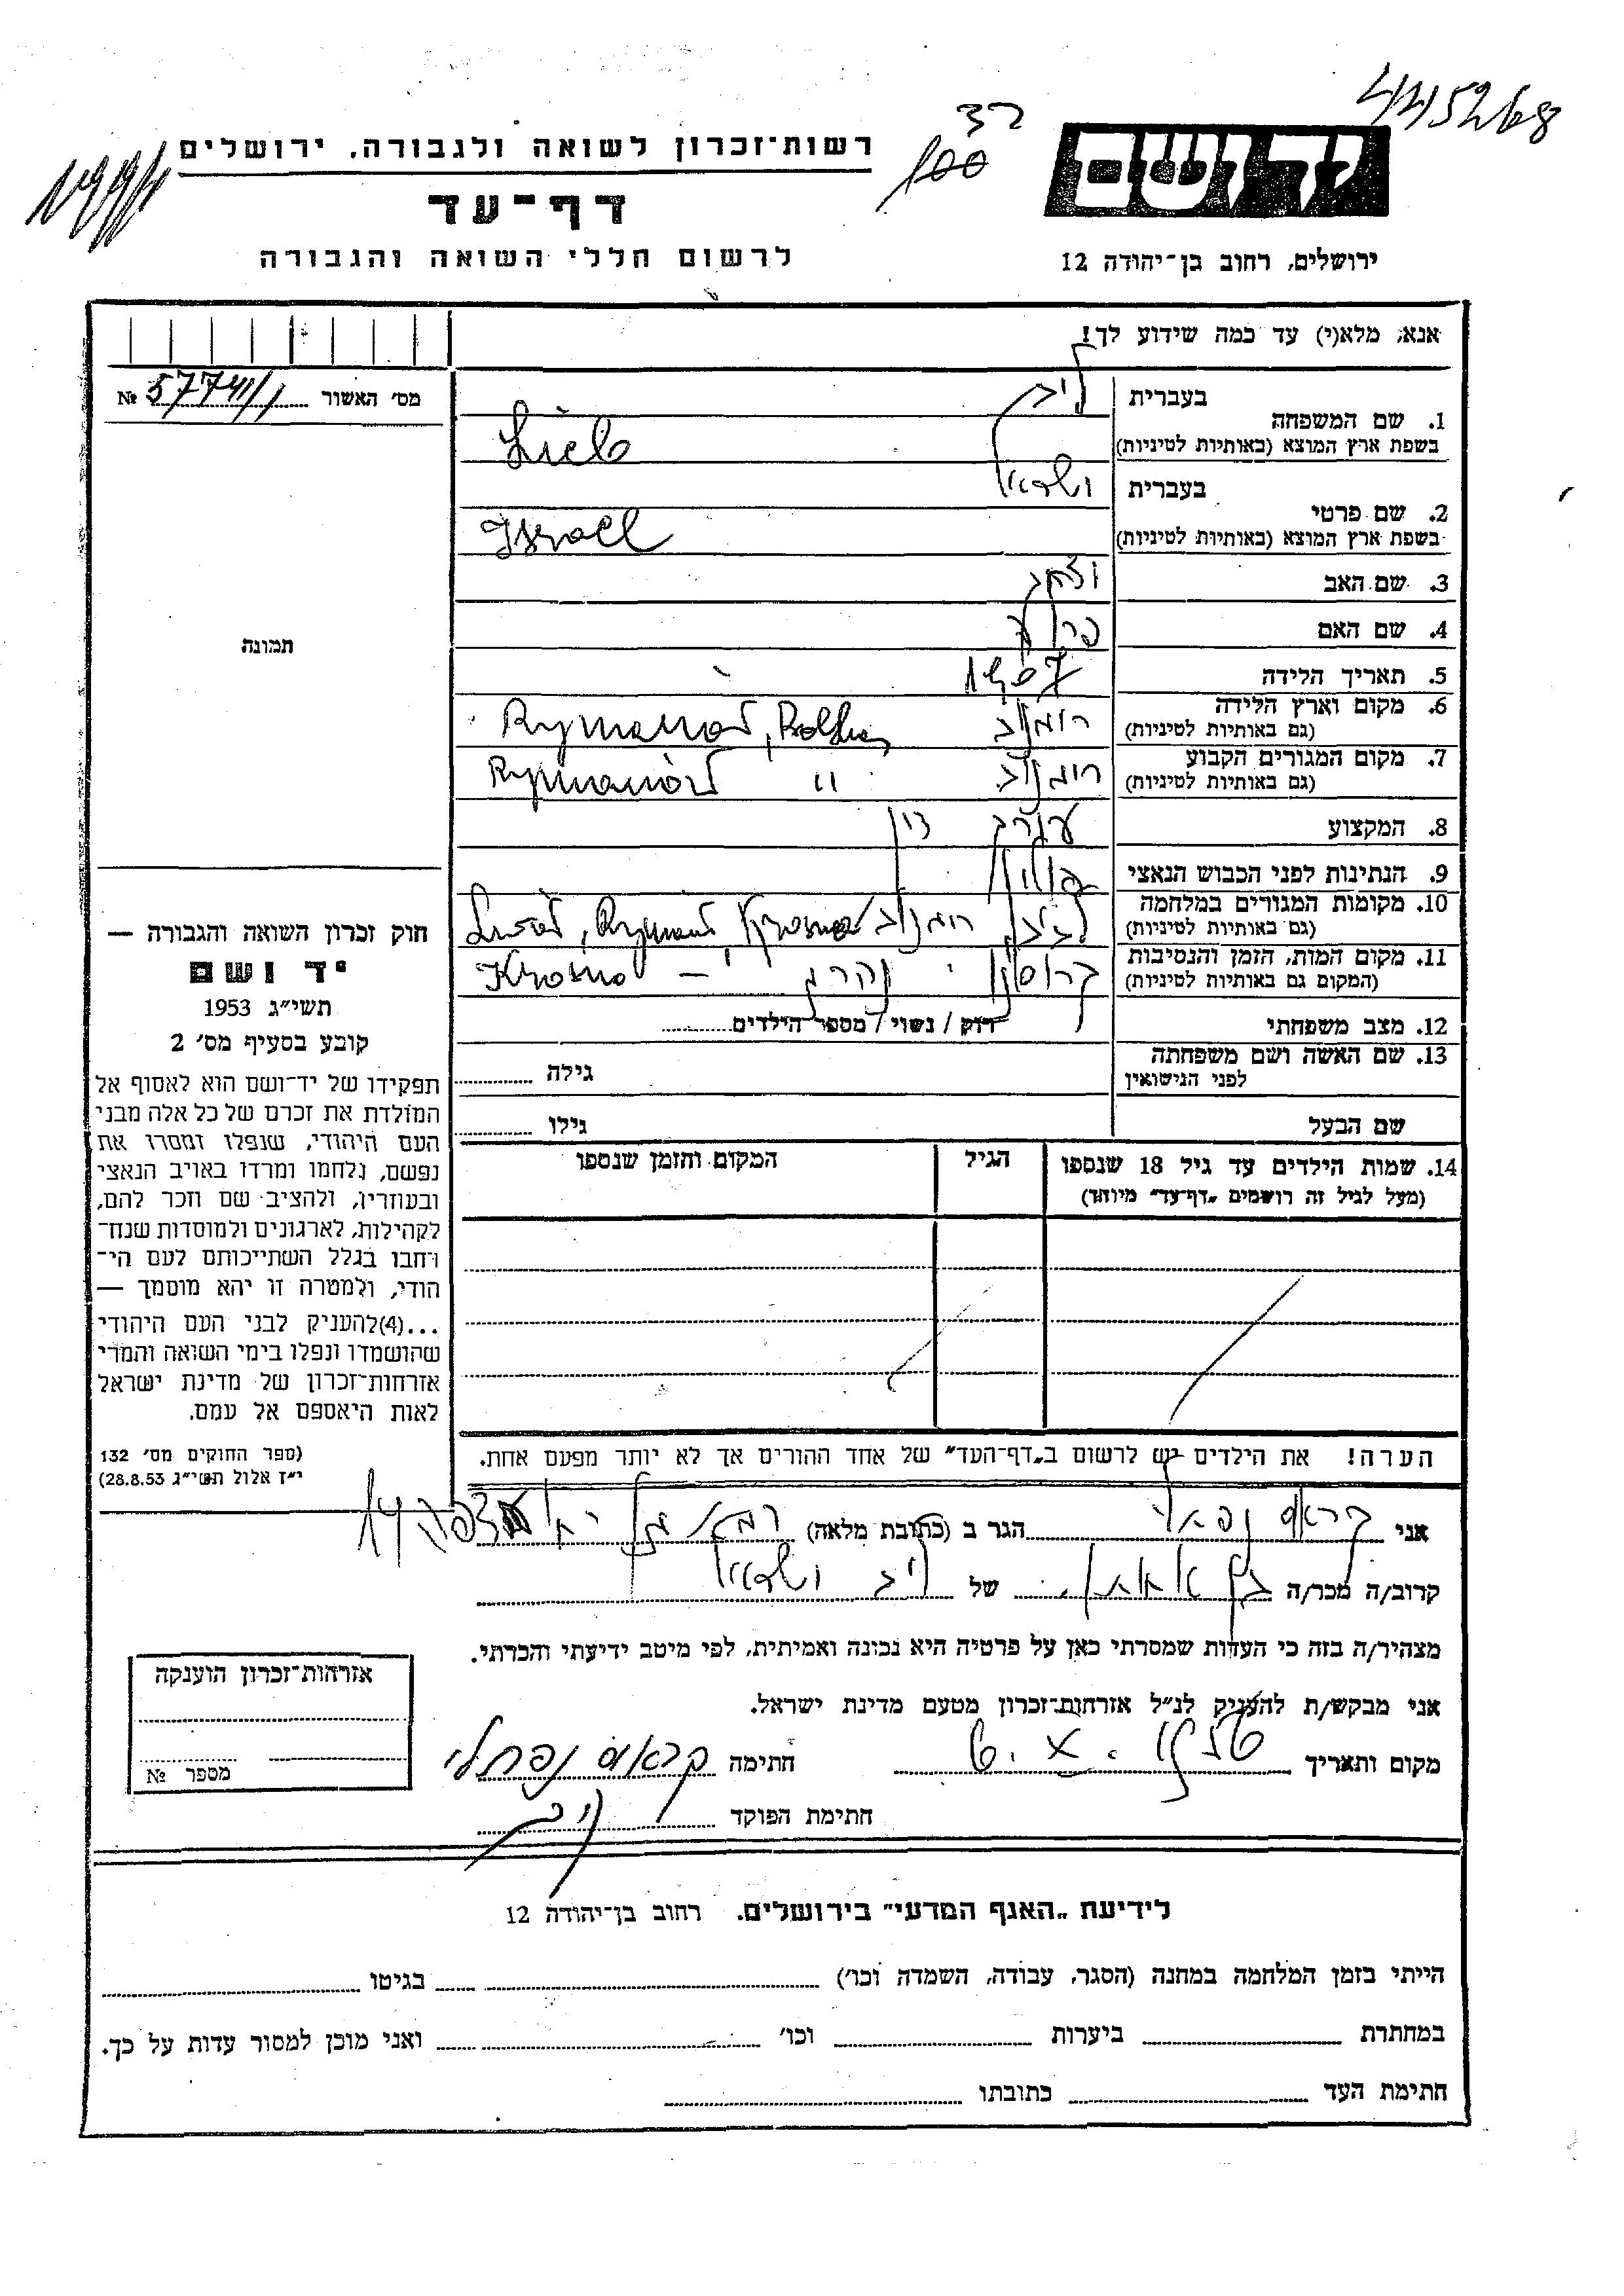 445268
37
100
יד ושם
רשות־זכרון לשואה ולגבורה, ירושלים
דף־עד
לרשום חללי השואה והגבורה
ירושלים, רחוב בן־יהודה 12
אנא, מלא(י) עד כמה שידוע לך!
מס׳ האשור № 57741/1
תמונה
1. שם המשפחה
בעברית ליב
בשפת ארץ המוצא (באותיות לטיניות) Lieb
2. שם פרטי
בעברית ישראל
בשפת ארץ המוצא (באותיות לטיניות) Israel
3. שם האב יצחק
4. שם האם
5. תאריך הלידה 1907
6. מקום וארץ הלידה רומנוב Rymanów, Polska
(גם באותיות לטיניות)
7. מקום המגורים הקבוע רומנוב Rymanów "
(גם באותיות לטיניות)
8. המקצוע עורך דין
9. הנתינות לפני הכבוש הנאצי פולין
10. מקומות המגורים במלחמה רומנוב Rymanów, Krosno
(גם באותיות לטיניות)
11. מקום המות, הזמן והנסיבות קרוסנו נהרג – Krosno
(המקום גם באותיות לטיניות)
12. מצב משפחתי רוק / נשוי / מספר הילדים
13. שם האשה ושם משפחתה
לפני הנישואין
גילה
שם הבעל גילו
14. שמות הילדים עד גיל 18 שנספו
(מעל לגיל זה רושמים „דף־עד״ מיוחד)
הגיל
המקום והזמן שנספו
הערה! את הילדים יש לרשום ב„דף־העד״ של אחד ההורים אך לא יותר מפעם אחת.
חוק זכרון השואה והגבורה —
יד ושם
תשי״ג 1953
קובע בסעיף מס׳ 2
תפקידו של יד־ושם הוא לאסוף אל
המולדת את זכרם של כל אלה מבני
העם היהודי, שנפלו ומסרו את
נפשם, נלחמו ומרדו באויב הנאצי
ובעוזריו, ולהציב שם וזכר להם,
לקהילות, לארגונים ולמוסדות שנח־
רחבו בגלל השתייכותם לעם הי־
הודי, ולמטרה זו יהא מוסמך —
...(4)להעניק לבני העם היהודי
שהושמדו ונפלו בימי השואה והמרי
אזרחות־זכרון של מדינת ישראל
לאות היאספם אל עמם.
(ספר החוקים מס׳ 132
י״ז אלול תשי״ג 28.8.53)
אני קראוס נפתלי הגר ב (כתובת מלאה) רמת גן
קרוב/ה מכר/ה של ליב ישראל
מצהיר/ה בזה כי העדות שמסרתי כאן על פרטיה היא נכונה ואמיתית, לפי מיטב ידיעתי והכרתי.
אני מבקש/ת להעניק לנ״ל אזרחות־זכרון מטעם מדינת ישראל.
מקום ותאריך חתימה קראוס נפתלי
חתימת הפוקד
אזרחות־זכרון הוענקה
מספר №
לידיעת „האגף המדעי״ בירושלים. רחוב בן־יהודה 12
הייתי בזמן המלחמה במחנה (הסגר, עבודה, השמדה וכו׳) בגיטו
במחתרת ביערות וכו׳ ואני מוכן למסור עדות על כך.
חתימת העד כתובתו